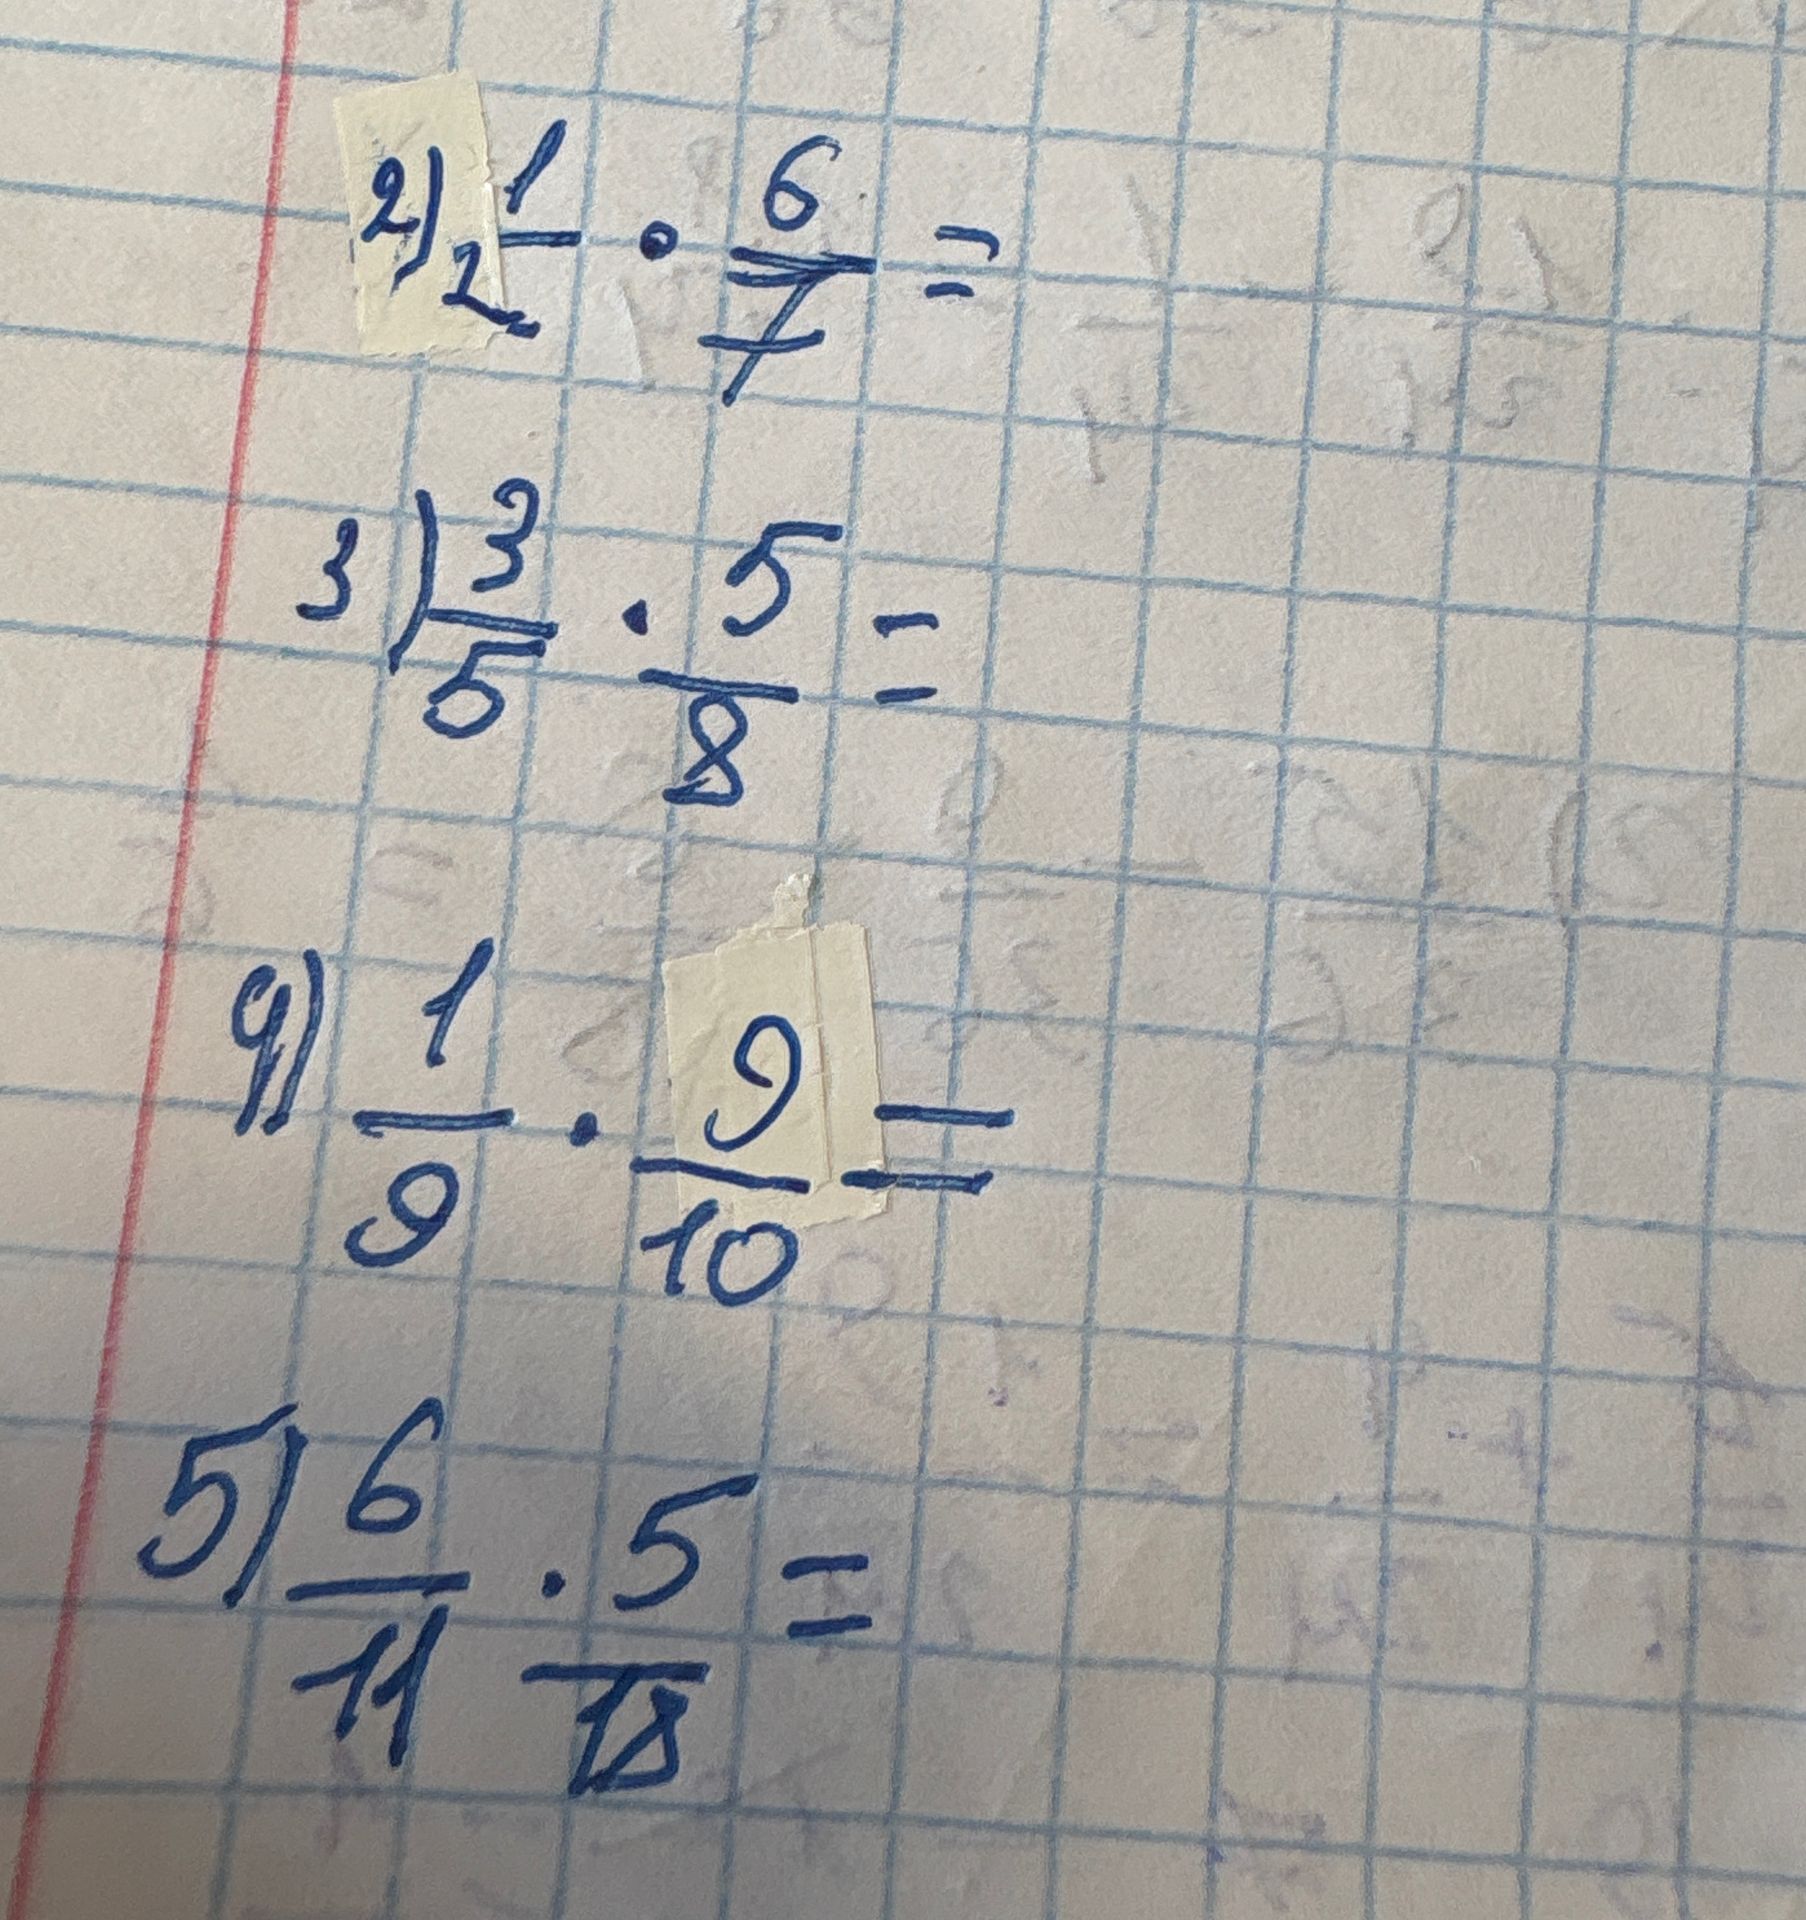 2) 1/2 · 6/7 =
3) 3/5 · 5/8 =
4) 1/9 · 9/10 =
5) 6/11 · 5/18 =